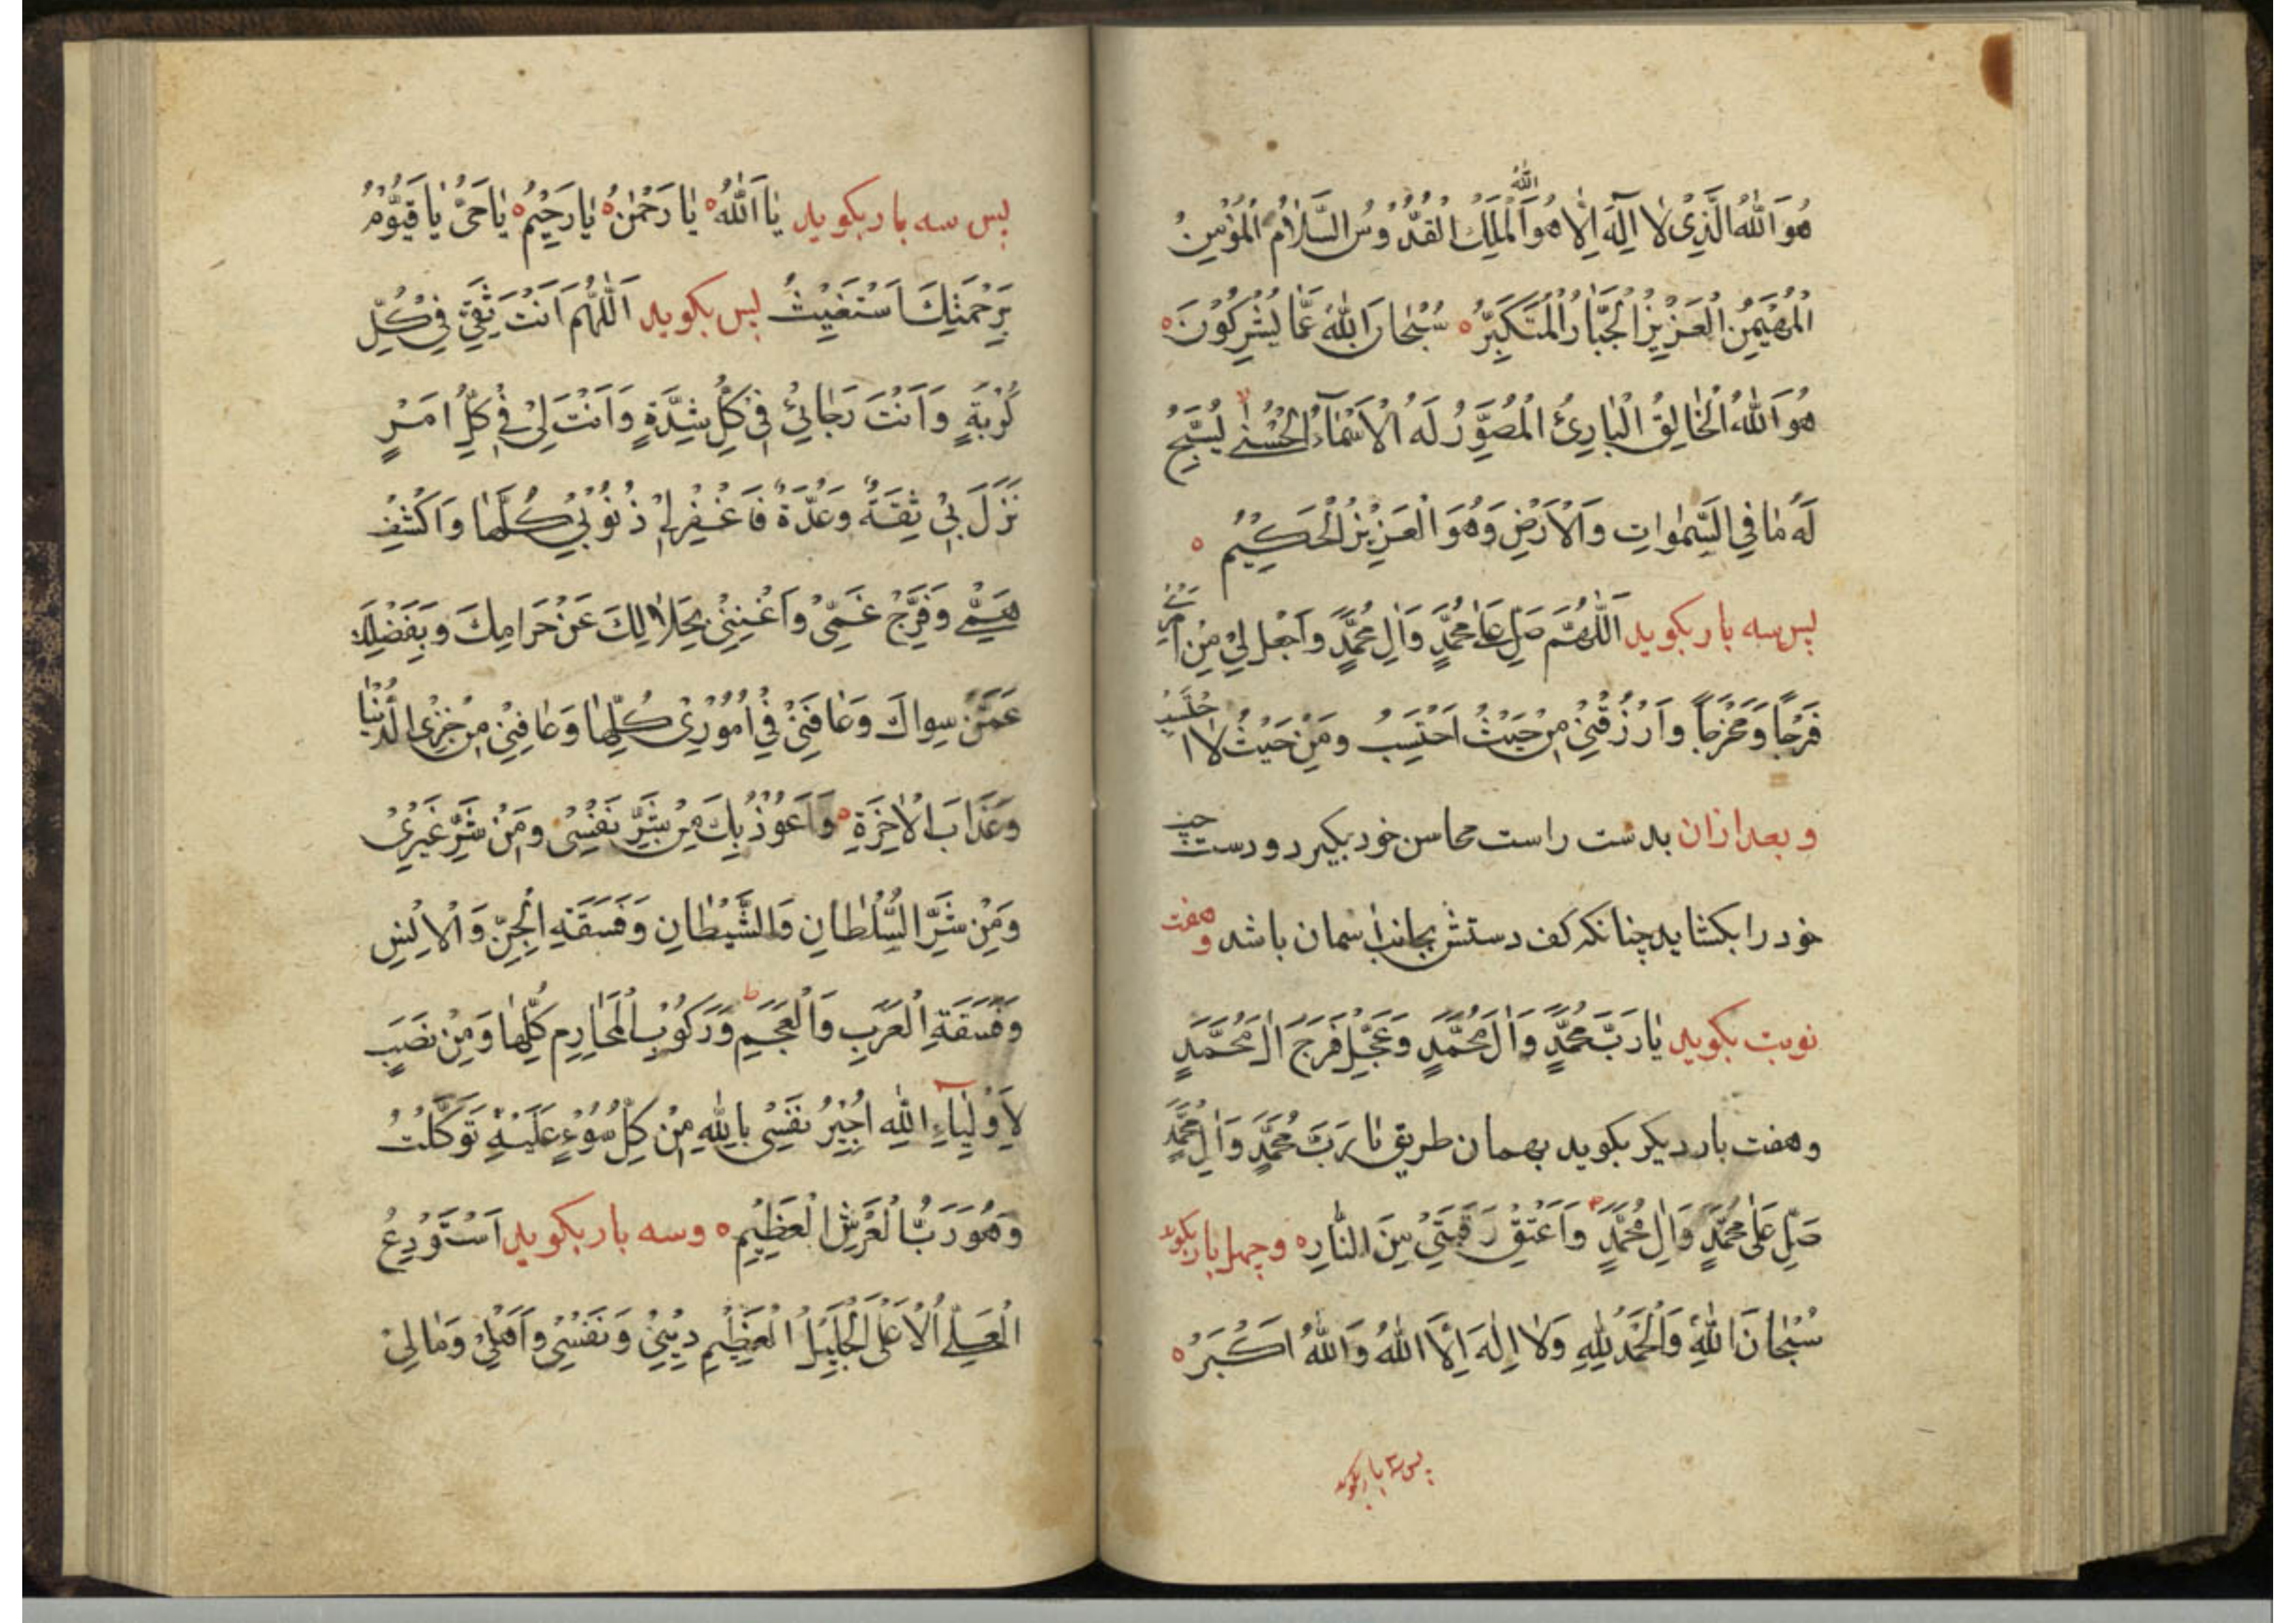 هُوَ اللهُ الَّذِیْ لَا اِلٰهَ اِلَّا هُوَ اَلْمَلِكُ الْقُدُّوْسُ السَّلَامُ الْمُؤْمِنُ
الله
الْمُهَیْمِنُ الْعَزِیْزُ الْجَبَّارُ الْمُتَكَبِّرُ ه سُبْحَانَ اللهِ عَمَّا یُشْرِكُوْنَ ه
هُوَ اللهُ الْخَالِقُ الْبَارِئُ الْمُصَوِّرُ لَهُ الْاَسْمَآءُ الْحُسْنٰی یُسَبِّحُ
لَهُ مَا فِی السَّمٰوَاتِ وَالْاَرْضِ وَهُوَ الْعَزِیْزُ الْحَكِیْمُ ه
پس سه بار بکوید اَللّٰهُمَّ صَلِّ عَلٰی مُحَمَّدٍ وَاٰلِ مُحَمَّدٍ وَاجْعَلْ لِیْ مِنْ اَمْرِیْ
فَرَجًا وَمَخْرَجًا وَارْزُقْنِیْ مِنْ حَیْثُ اَحْتَسِبُ وَمِنْ حَیْثُ لَا احتسب
و بعد ازان بدست راست محاسن خود بکیرد و دست چپ
خود را بکشاید چنانکه کف دستش بجانب اسمان باشد و هفت
نوبت بکوید یَا رَبَّ مُحَمَّدٍ وَاٰلَ مُحَمَّدٍ وَعَجِّلْ فَرَجَ اٰلِ مُحَمَّدٍ
و هفت بار دیکر بکوید بهمان طریق یَا رَبَّ مُحَمَّدٍ وَاٰلِ مُحَمَّدٍ
صَلِّ عَلٰی مُحَمَّدٍ وَاٰلِ مُحَمَّدٍ وَاَعْتِقْ رَقَبَتِیْ مِنَ النَّارِ ه و چهل بار بکوید
سُبْحَانَ اللهِ وَالْحَمْدُ لِلّٰهِ وَلَا اِلٰهَ اِلَّا اللهُ وَاللهُ اَكْبَرُ ه
پس ۳ بار بکوید
پس سه بار بکوید یَا اَللهُ ه یَا رَحْمٰنُ ه یَا رَحِیْمُ ه یَا حَیُّ یَا قَیُّوْمُ
بِرَحْمَتِكَ اَسْتَغِیْثُ پس بکوید اَللّٰهُمَّ اَنْتَ ثِقَتِیْ فِیْ كُلِّ
كُرْبَةٍ وَاَنْتَ رَجَائِیْ فِیْ كُلِّ شِدَّةٍ وَاَنْتَ لِیْ فِیْ كُلِّ اَمْرٍ
نَزَلَ بِیْ ثِقَةٌ وَعُدَّةٌ فَاغْفِرْ لِیْ ذُنُوْبِیْ كُلَّهَا وَاكْشِفْ
هَمِّیْ وَفَرِّجْ غَمِّیْ وَاَغْنِنِیْ بِحَلَالِكَ عَنْ حَرَامِكَ وَبِفَضْلِكَ
عَمَّنْ سِوَاكَ وَعَافِنِیْ فِیْ اُمُوْرِیْ كُلِّهَا وَعَافِنِیْ مِنْ خِزْیِ الدُّنْیَا
وَعَذَابِ الْاٰخِرَةِ ه وَاَعُوْذُ بِكَ مِنْ شَرِّ نَفْسِیْ وَمِنْ شَرِّ غَیْرِیْ
وَمِنْ شَرِّ السُّلْطَانِ وَالشَّیْطَانِ وَفَسَقَةِ الْجِنِّ وَالْاِنْسِ
وَفَسَقَةِ الْعَرَبِ وَالْعَجَمِ وَرَكُوْبِ الْمَحَارِمِ كُلِّهَا وَمِنْ نَصَبٍ
لِاَوْلِیَآءِ اللهِ اُجِیْرُ نَفْسِیْ بِاللهِ مِنْ كُلِّ سُوْءٍ عَلَیْهِ تَوَكَّلْتُ
وَهُوَ رَبُّ الْعَرْشِ الْعَظِیْمِ ه و سه بار بکوید اَسْتَوْدِعُ
الْعَلِیَّ الْاَعْلَی الْجَلِیْلَ الْعَظِیْمِ دِیْنِیْ وَنَفْسِیْ وَاَهْلِیْ وَمَالِیْ